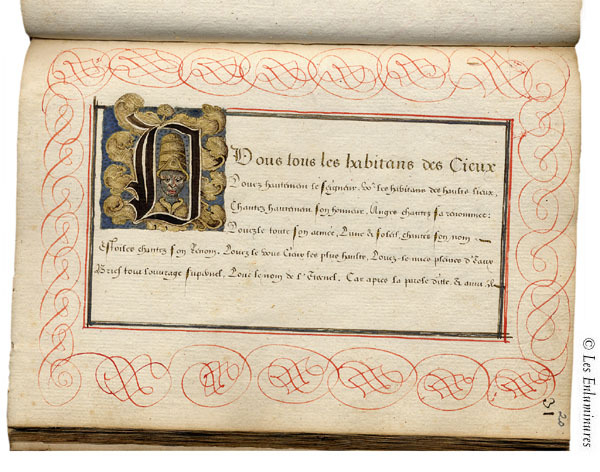 Vous tous les habitans des Cieux
Louez hautement le seigneur, Vo9 les habitans des haults lieux,
Chantez hautement son honneur, Anges chantez sa renommee:
Louez le toute son armee, Lune & soleil, chantez son nom
Estoiles chantez son Renom. Louez le vous Cieux les plus haults, Louez-le nues pleines d'Eaux
Brief tout l'ouvrage supernel, Loue le nom de l'Eternel. Car apres la parole ditte, &
31
20
© Les Enluminures